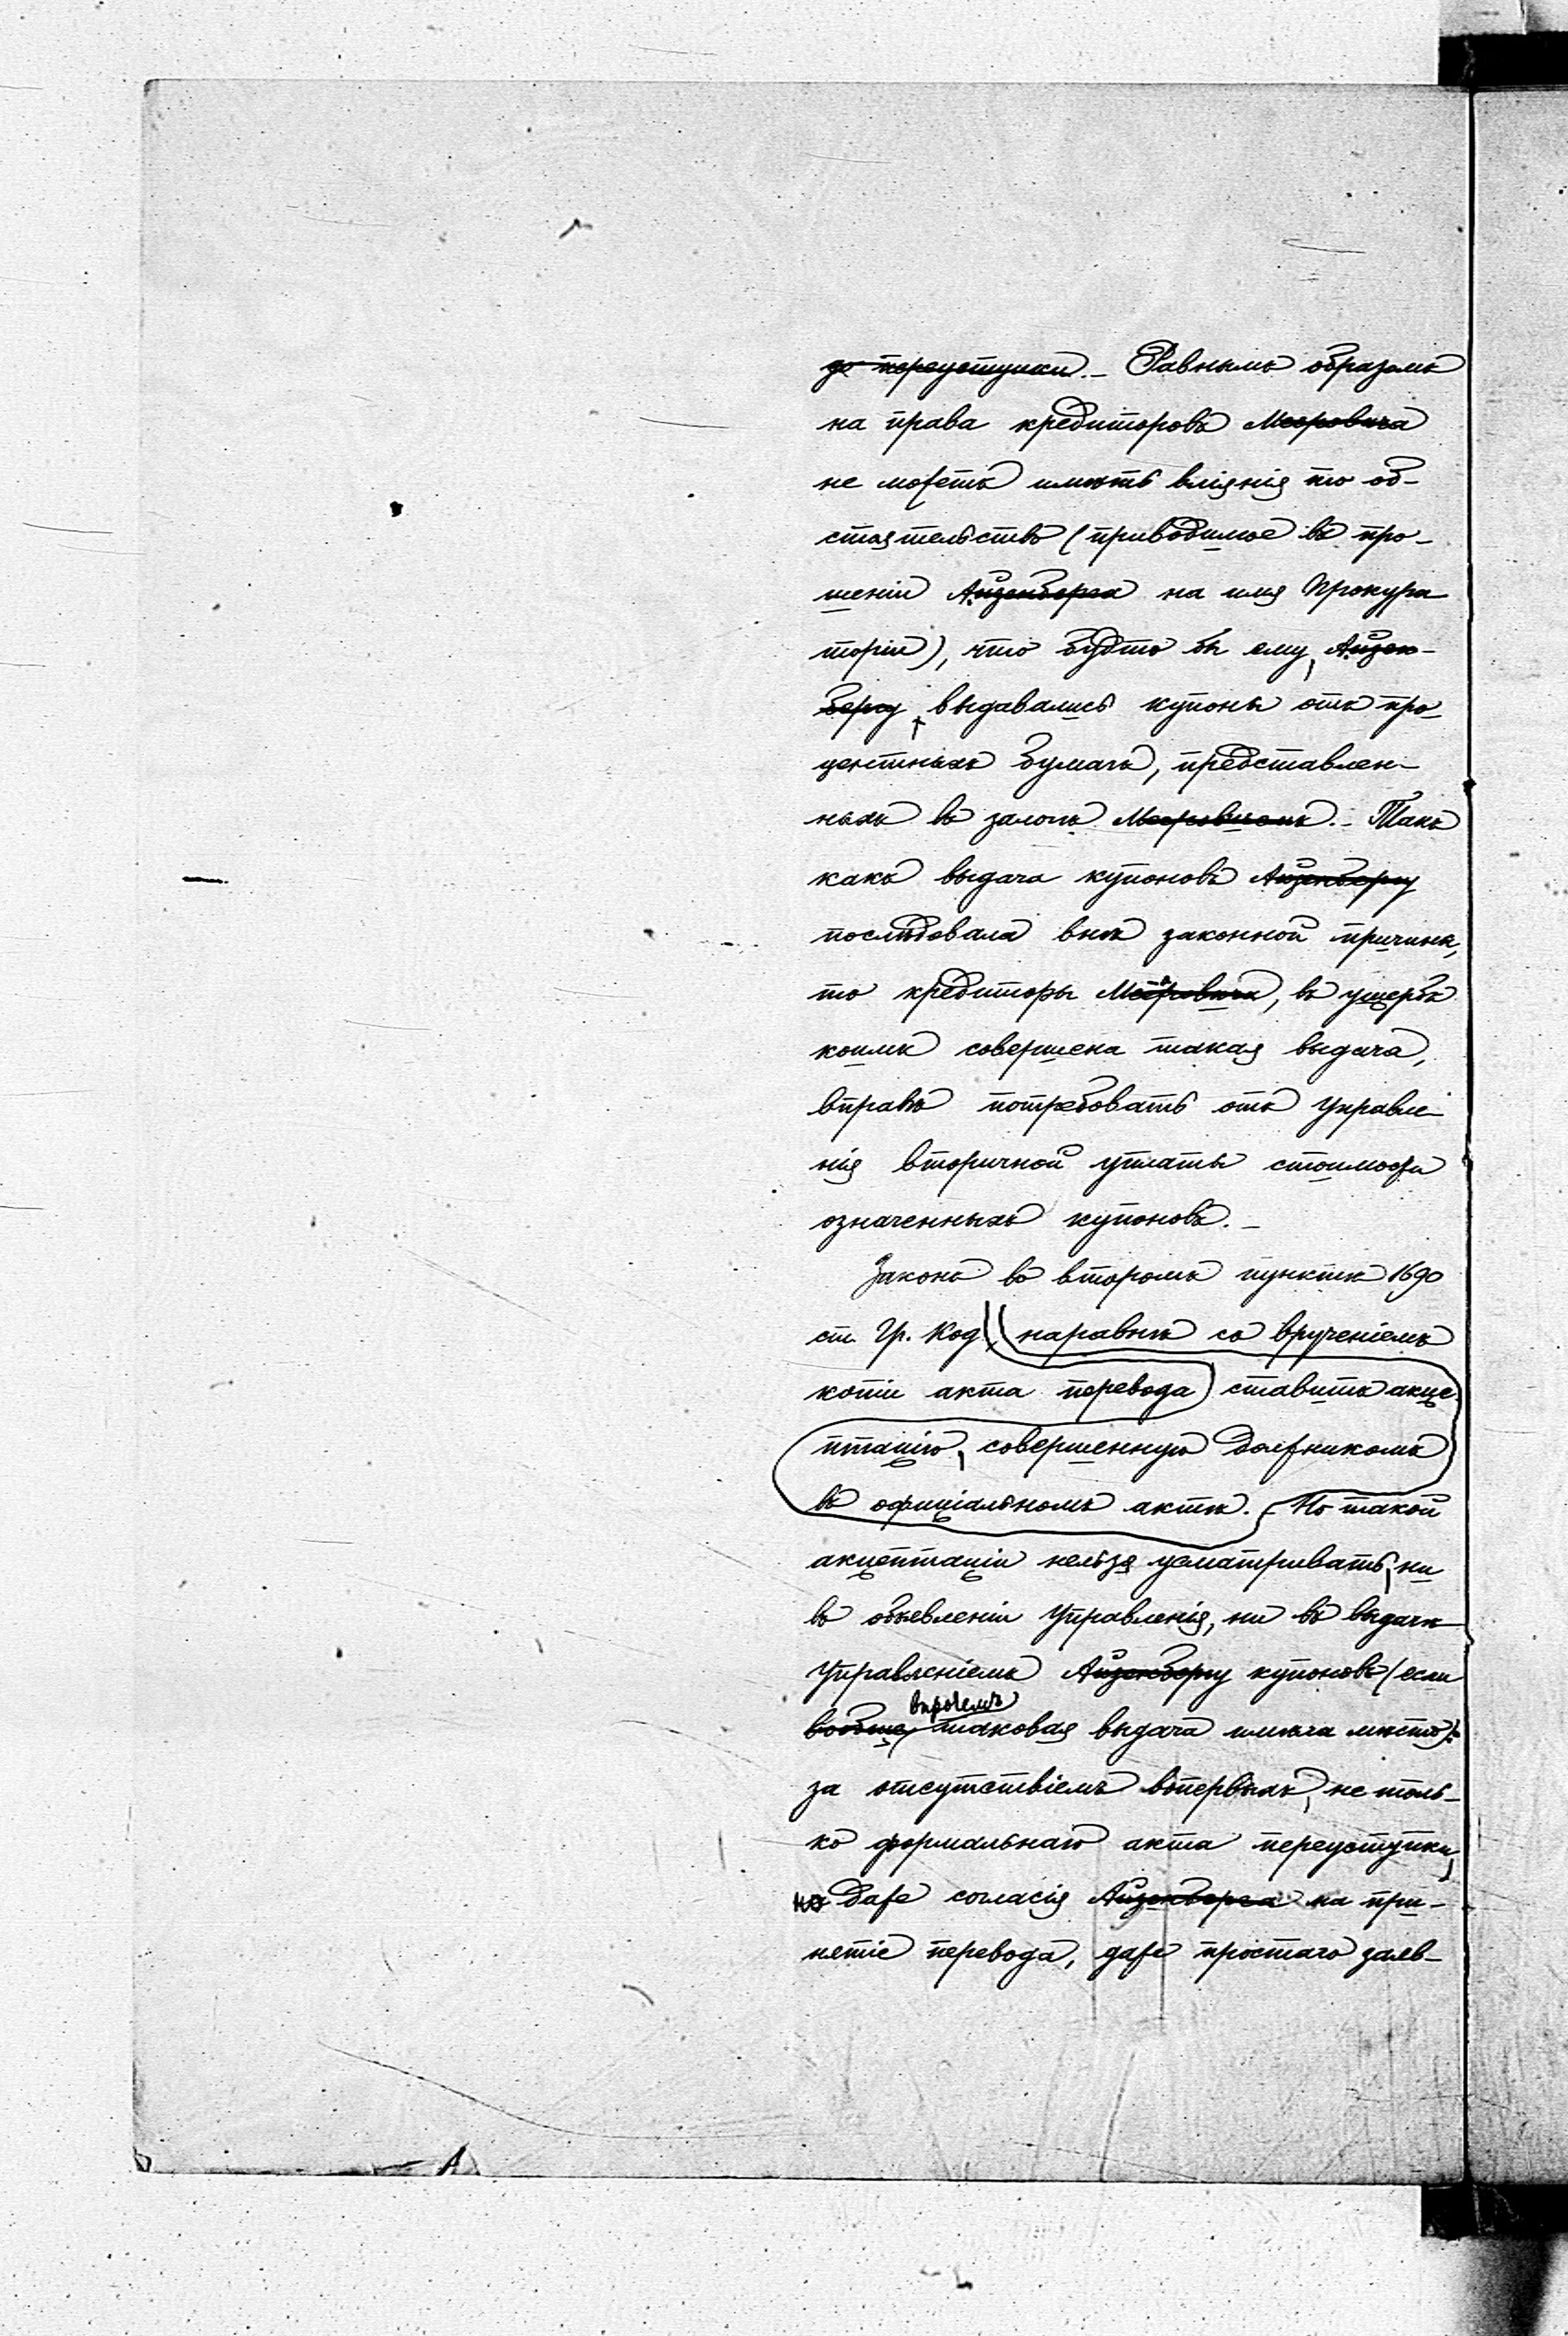 до переуступки. – Равнымъ образомъ
на права кредиторовъ Мееровича
не можетъ имѣть вліянія то об-
стоятельство (приводимое въ про-
шеніи Айзенберга на имя Прокура
торіи), что будто бы ему, Айзен-
бергу, выдавались купоны отъ про-
центныхъ бумагъ, представлен-
ныхъ въ залогъ Мееровичемъ. – Такъ
какъ выдача купоновъ Айзенбергу
послѣдовала внѣ законной причины,
то кредиторы Мееровича, въ ущербъ
коимъ совершена такая выдача,
вправѣ потребовать отъ Управле-
нія вторичной уплаты стоимости
означенныхъ купоновъ. –
Законъ во второмъ пунктѣ 1690
ст. Гр. Код. наравнѣ со врученіемъ
копіи акта перевода ставитъ акце-
птацію, совершенную должникомъ
въ офиціальномъ актѣ. – Но такой
акцептаціи нельзя усматривать, ни
въ объявленіи Управленія, ни въ выдачѣ
Управленіемъ Айзенбергу купоновъ (если
впрочемъ
вообще таковая выдача имѣла мѣсто):
за отсутствіемъ вопервыхъ, не толь-
ко формальнаго акта переуступки,
но даже согласія Айзенберга на при-
нятіе перевода, даже простаго заяв-